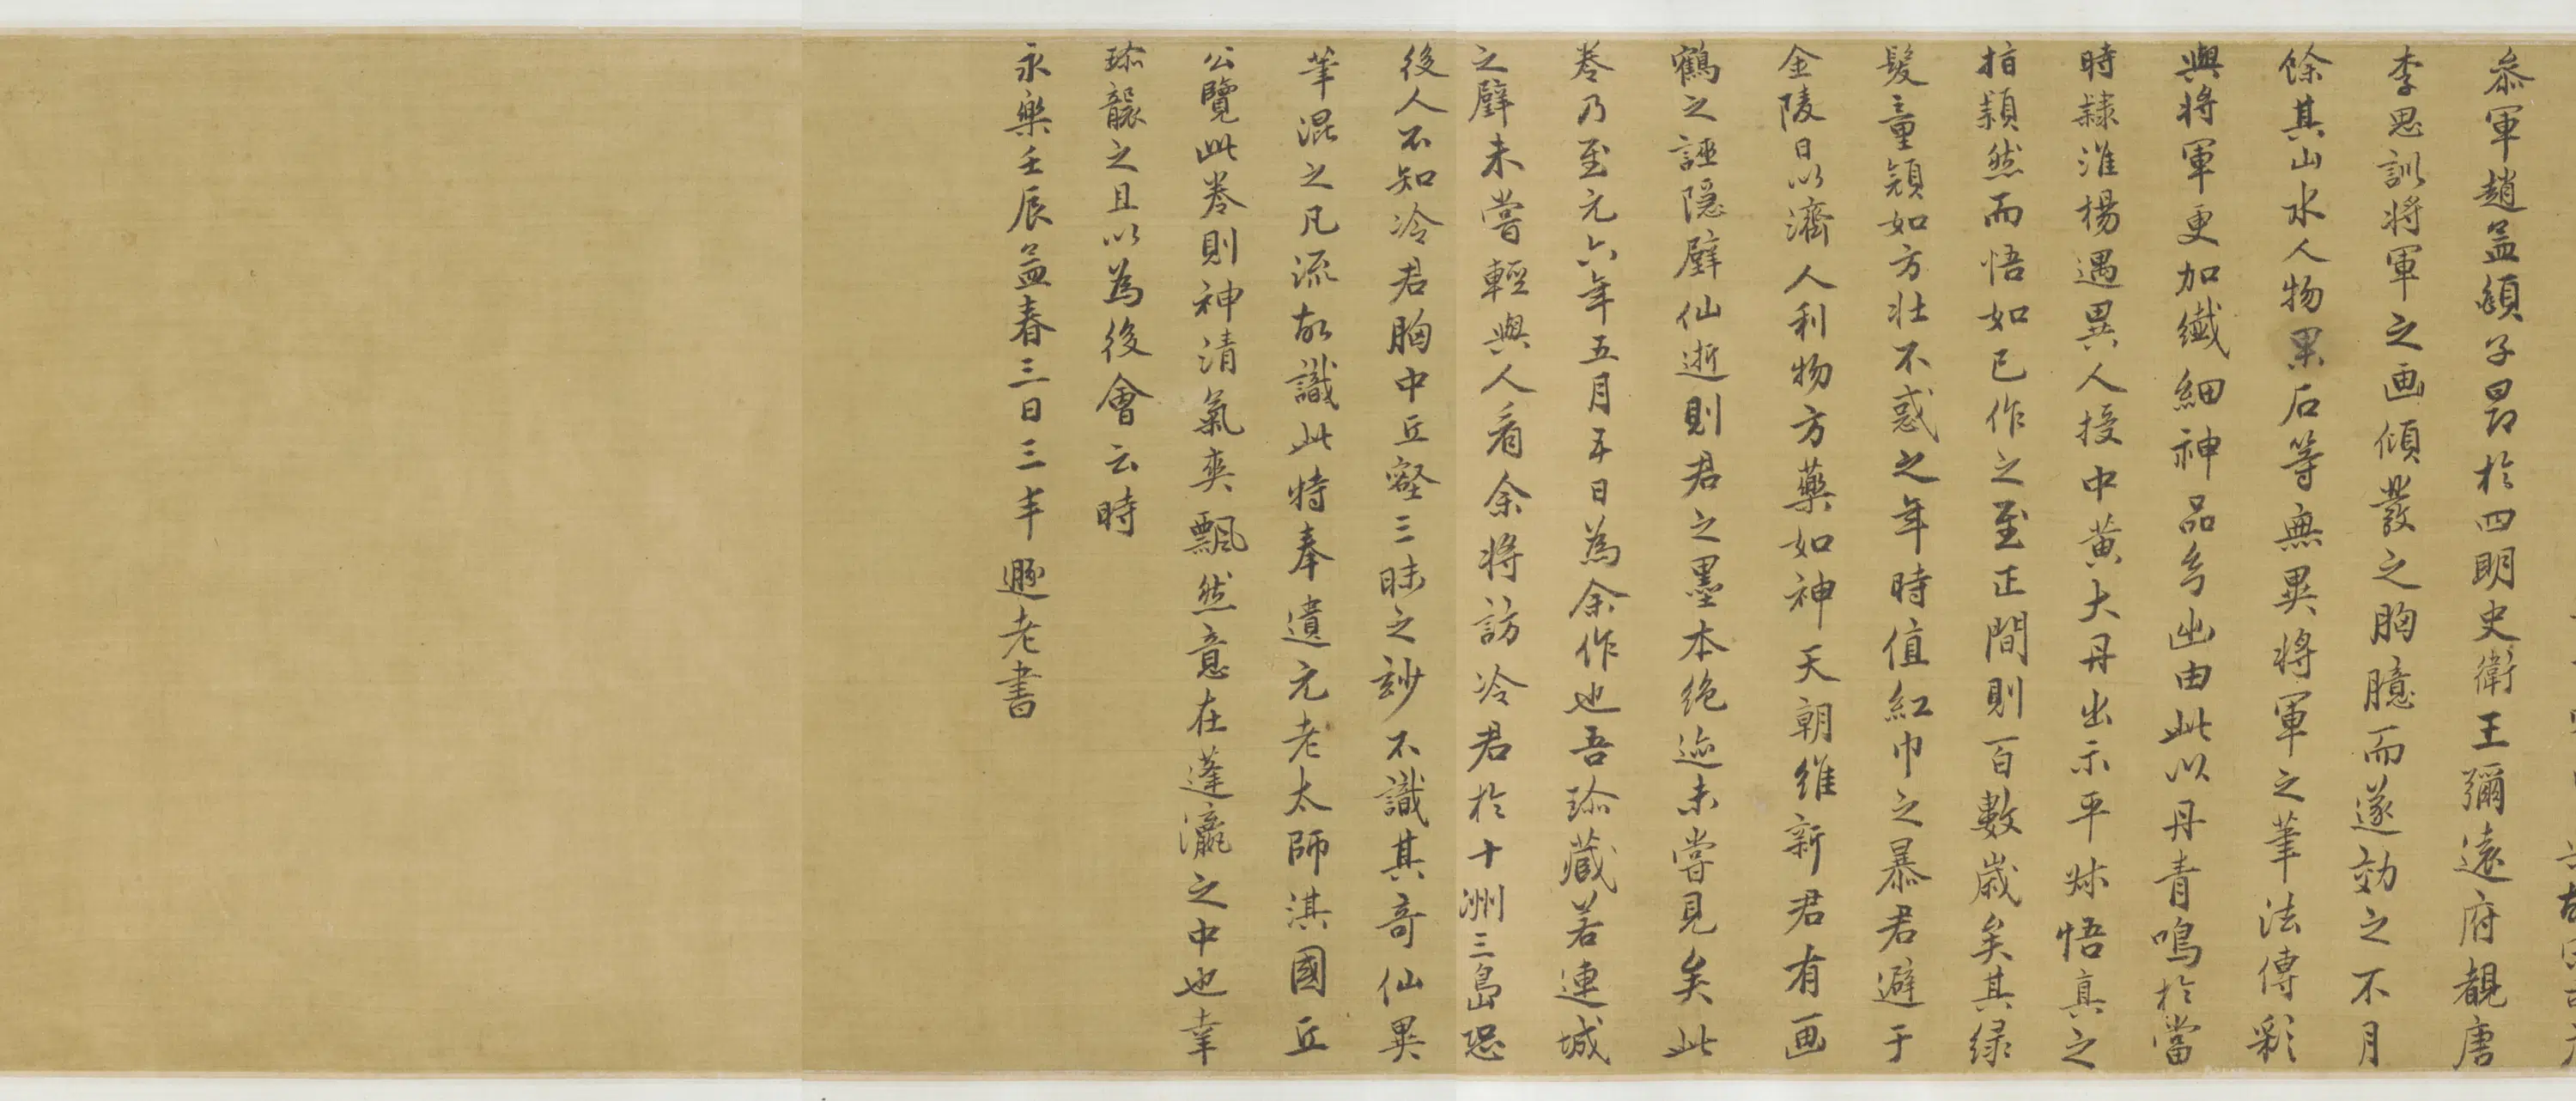 叅軍趙孟頫子昂於四明史衛王彌遠府覩唐
李思訓將軍之画傾發之胸臆而遂効之不月
餘其山水人物果石等無異將軍之筆法傅彩
與將軍更加纖細神品兮幽由此以丹青鳴於當
時隷淮楊遇異人授中黄大丹出示平叔悟真之
指頴然而悟如已作之至正間則百數歲矣其绿
髮童顔如方壮不惑之年時值紅巾之暴君避于
金陵日以濟人利物方藥如神天朝維新君有画
鶴之誣隐壁仙逝則君之墨本绝迹未嘗見矣此
卷乃至元六年五月五日為余作也吾珎藏若連城
之璧未嘗輕與人看余將訪冷君扵十洲三島恐
後人不知冷君胸中丘壑三昧之玅不識其奇仙異
筆混之凡流故識此特奉遺元老太師淇國丘
公覽此卷則神清氣爽飄然意在蓬瀛之中也幸
珎襲之且以為後會云時
永樂壬辰孟春三日三丰遯老書